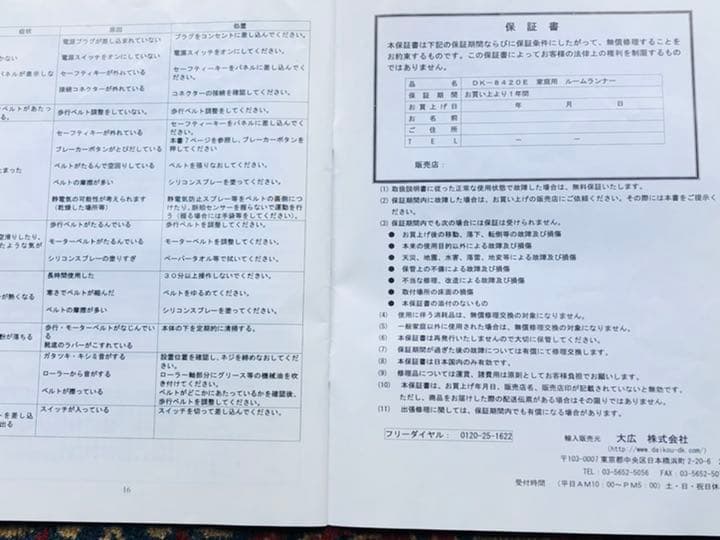 症状 原因 処置
電源プラグが差し込まれていない プラグをコンセントに差し込んでください。
かない 電源スイッチがオンにしていない 電源スイッチをオンにしてください。
パネルが表示しな セーフティキーが外れている セーフティーキーをパネルに差し込んでください。
接続コネクターが外れている コネクターの接続を確認してください。
ベルトがあたっ 歩行ベルト調整をしていない。 歩行ベルト調整をしてください。
る。
セーフティキーが外れている セーフティーキーをパネルに差し込んでください。
ブレーカーがとびだしている 本書7ページを参照し、ブレーカーボタンを
押してください
止まった ベルトがたるんで空回りしている ベルトを張りなおしてください。
ベルトの摩擦が多い シリコンスプレーを塗ってください。
静電気の可能性が考えられます 静電気防止スプレー等をベルトの裏側につ
(乾燥した場所等) けたり、脈拍センサーを握らないで運動を行
う(握る場合には手袋等をしてください。)
歩行ベルトがたるんでいる 歩行ベルトを調整してください。
空滑りしたり、 モーターベルトがたるんでいる モーターベルトを調整してください。
たような気が シリコンスプレーの塗りすぎ ペーパータオル等で拭いてください。
長時間使用した 30分以上操作しないでください。
が熱くなる 寒さでベルトが縮んだ ベルトをゆるめてください。
ベルトの摩擦が多い シリコンスプレーを塗ってください。
粉が落ちる 歩行・モーターベルトがなじんでいる 本体の下を定期的に清掃する。
靴底のラバーがこすれている
ガタツキ・キシミ音がする 設置位置を確認し、ネジを締めなおしてください。
ローラーから音がする ローラー軸部分にグリース等の機械油を吹
き付けてください。
ベルトが擦っている ベルトがどこかにあたっているかを確認後、
歩行ベルトを調整してください。
を差し込 スイッチが入っている スイッチを切って差し込んでください。
出る
16
保証書
本保証書は下記の保証期間ならびに保証条件にしたがって、無償修理することを
お約束するものです。この保証書によってお客様の法律上の権利を制限するもの
ではありません。
品名 DK-8420E 家庭用 ルームランナー
保証期間 お買い上より1年間
お買上げ日 年 月 日
お名前
ご住所
TEL － －
販売店:
(1) 取扱説明書に従った正常な使用状態で故障した場合は、無料保証いたします。
(2) 保証期間内に故障した場合は、お買い上げの販売店にご依頼ください。その際には本書をご提示く
ださい。
(3) 保証期間内でも次の場合には保証は受けられません。
● お買上げ後の移動、落下、転倒等の故障及び損傷
● 本来の使用目的以外による故障及び損傷
● 天災、地震、水害、落雷、地変等による故障及び損傷
● 保管上の不備による故障及び損傷
● 不当な修理、改造による故障及び損傷
● 取付場所の床面の損傷
● 本保証書の添付のないもの
(4) 使用に伴う消耗品は、無償修理交換の対象になりません。
(5) 一般家庭以外に使用された場合は、無償修理交換の対象になりません。
(6) 本保証書は再発行いたしませんので大切に保管してください。
(7) 保証期間が過ぎた後の故障については有償にて修理交換します。
(8) 本保証書は日本国内のみ有効です。
(9) 修理品については運賃、諸費用は原則としてお客様負担でお願いします。
(10) 本保証書は、お買上げ年月日、販売店名、販売店印が記載されていないと無効です。
ただし、商品をお届けした際の配送伝票がある場合はその限りではありません。
(11) 出張修理に関しては、保証期間内でも有償になる場合があります。
フリーダイヤル: 0120-25-1622
輸入販売元 大広 株式会社
(http://www.daikou-dk.com/)
〒103-0007 東京都中央区日本橋浜町2-20-6
TEL 03-5652-5056 FAX 03-565
受付時間 (平日AM10:00～PM5:00) 土・日・祝日休